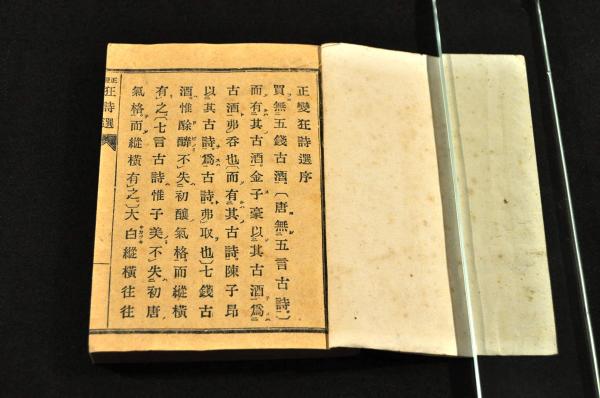 正變狂詩選序
買無五錢古酒。〔唐無五言古詩。〕
而有其古酒。金子豪以其古酒爲
古酒。弗呑也。〔而有其古詩。陳子昂
以其古詩。爲古詩。弗取也。〕七錢古
酒惟酴醿不失初釀氣格。而縱橫
有之。〔七言古詩惟子美不失初唐
氣格。而縱橫有之。〕大白縱橫往往
狂詩選